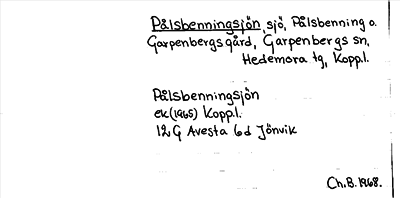 Pålsbenningsjön, sjö, Pålsbenning o.
Garpenbergsgård, Garpenbergs sn,
Hedemora tg, Koppl.
Pålsbenningsjön
ek (1965) Koppl.
12G Avesta 6d Jönvik
Ch.B. 1968.